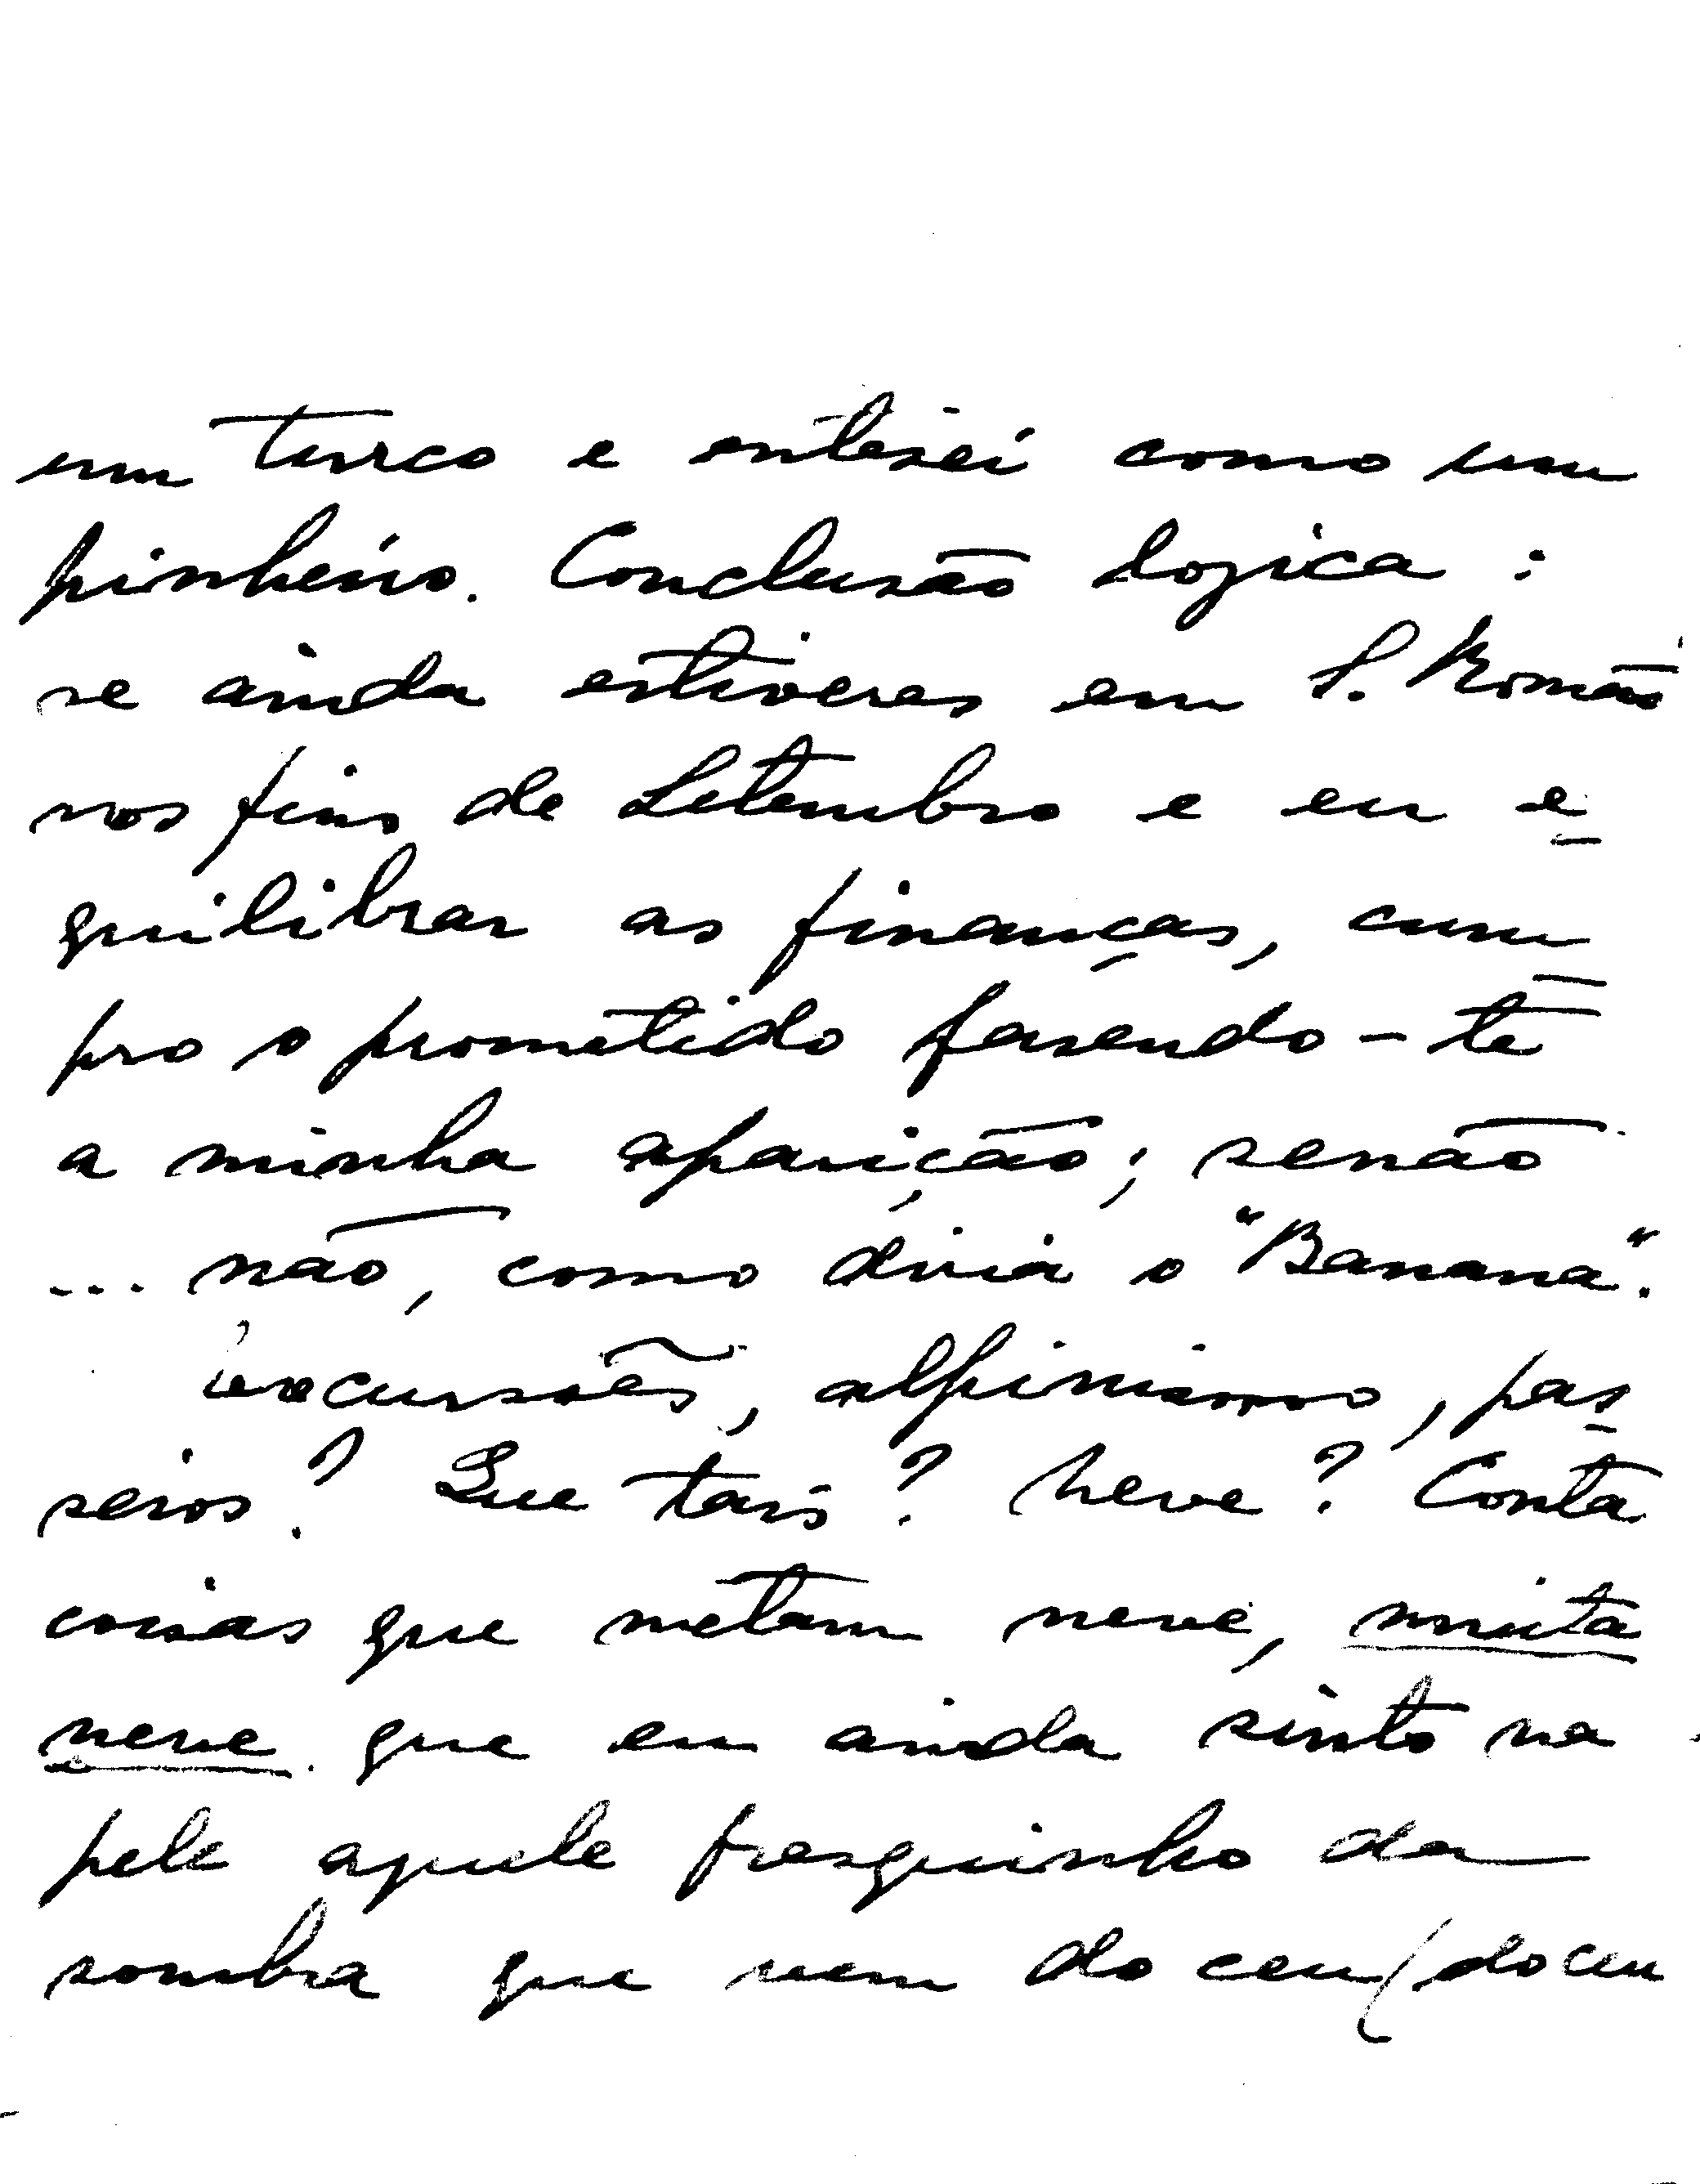 um turco e entesei como um
pinheiro. Conclusão logica :
se ainda estiveres em S. Romão
nos fins de Setembro e eu e
quilibrar as finanças, cum
pro o prometido fasendo-te
a minha aparição; senão
... não, como disia o "Banana".
excursões, alpinismo, pas
seios? Que tais? Neve? Conta
coisas que metam neve, muita
neve. que eu ainda sinto na
pele aquele fresquinho da
sombra que vem do ceu (do ceu